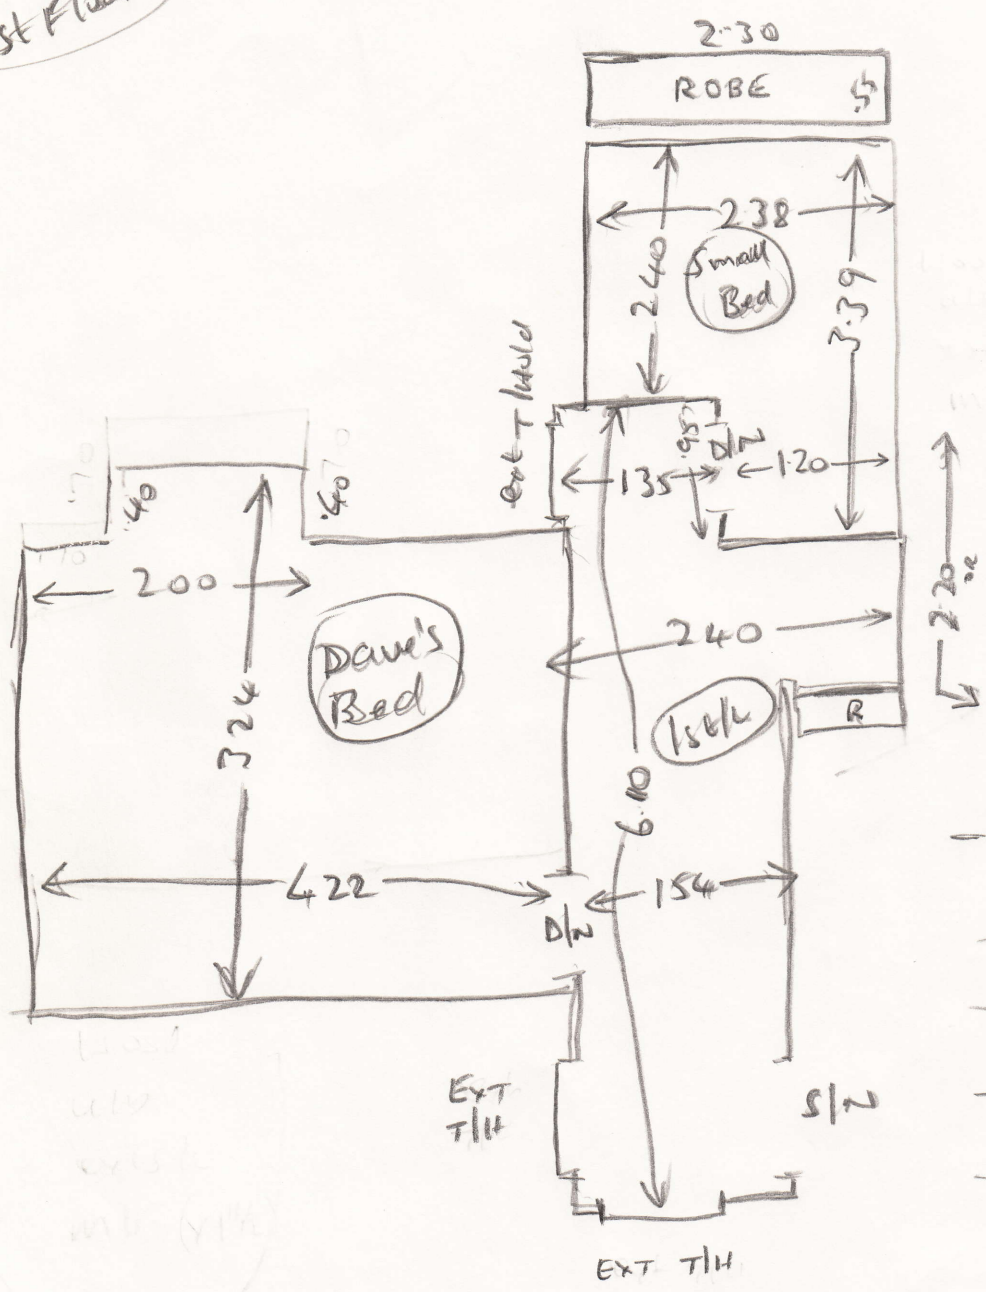 st Floor
2.30
ROBE
2.38
Small
Bed
2.40
3.39
ext T/Hold
.95
D/N
135
1.20
.70
.70
.40
.40
200
2.20
Dave's
Bed
240
324
1st/L
R
6.10
422
154
D/N
EXT
T/H
S/N
EXT T/H